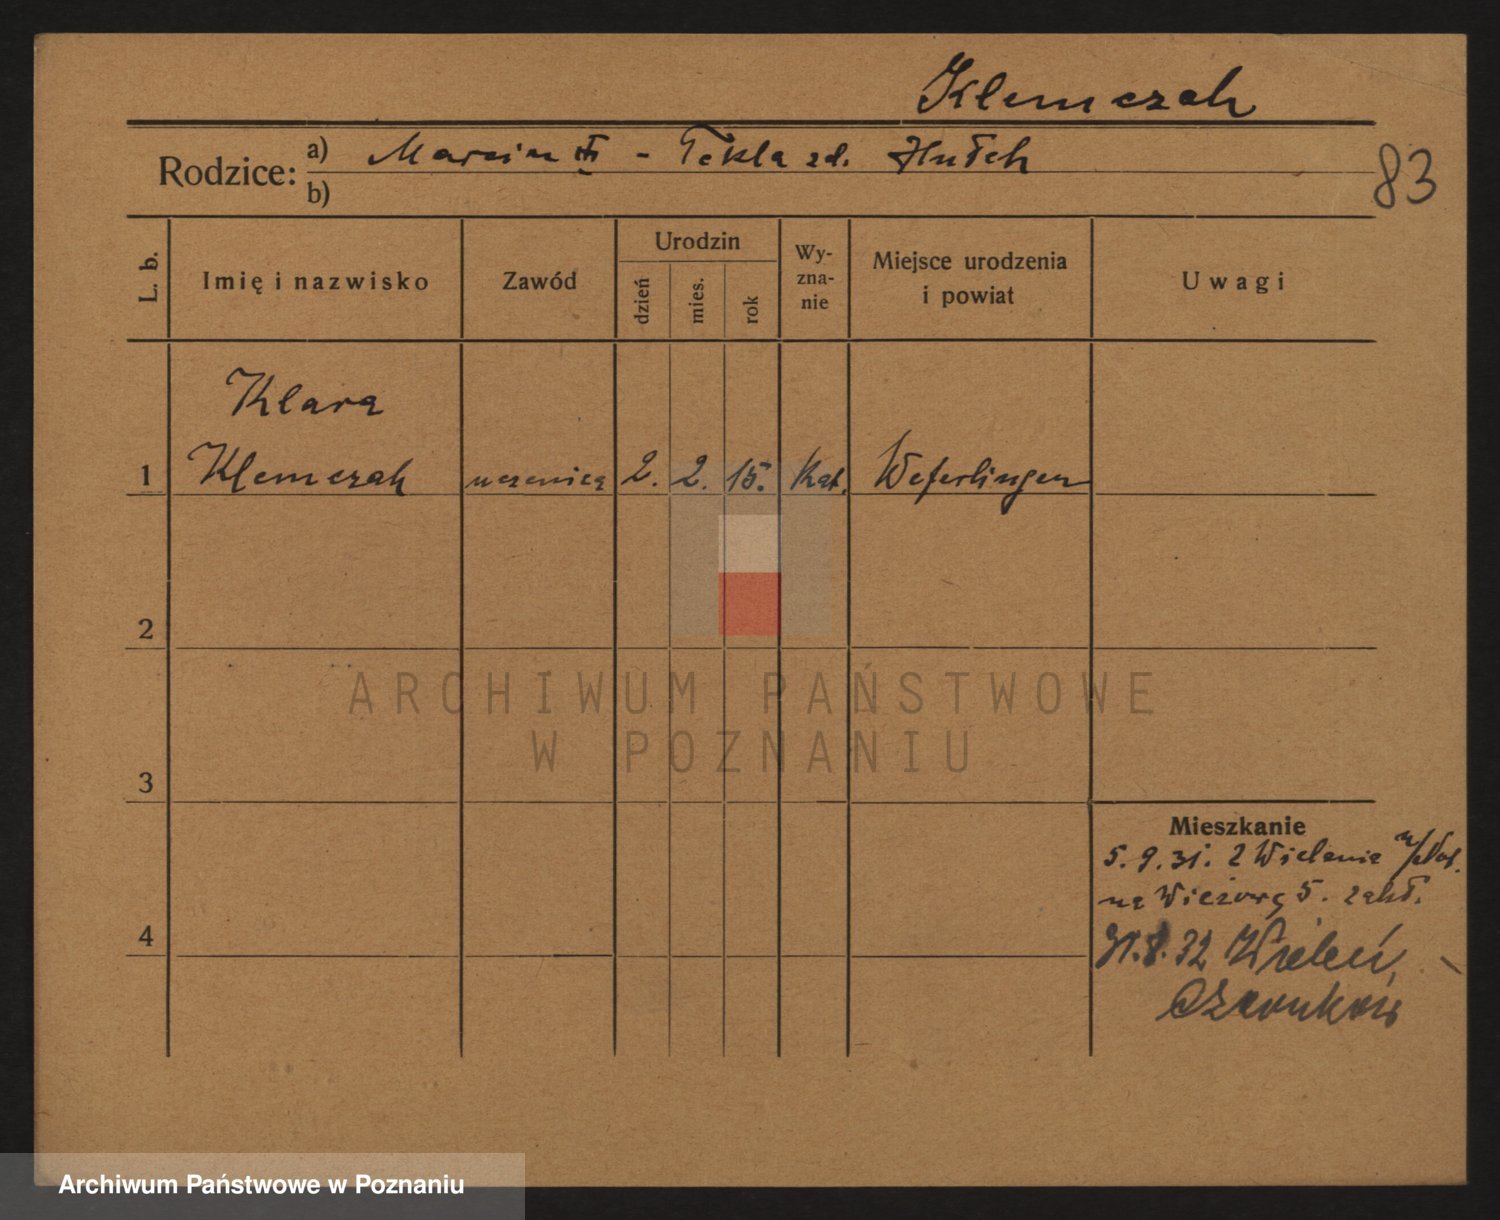 Klemczak
Rodzice: a) Marcin - Tekla zd.
b)
83
L. b.
Imię i nazwisko
Zawód
Urodzin
dzień
mies.
rok
Wy-
zna-
nie
Miejsce urodzenia
i powiat
Uwagi
Klara
1 Klemczak uczenica 2. 2. 15. Kat. Weferlingen
2
ARCHIWUM PAŃSTWOWE
W POZNANIU
3
Mieszkanie
5.9.31. z Wielenia n/Not.
na Wieżową 5. zakł.
4
31.8.32 Wieleń,
Czarnków
Archiwum Państwowe w Poznaniu